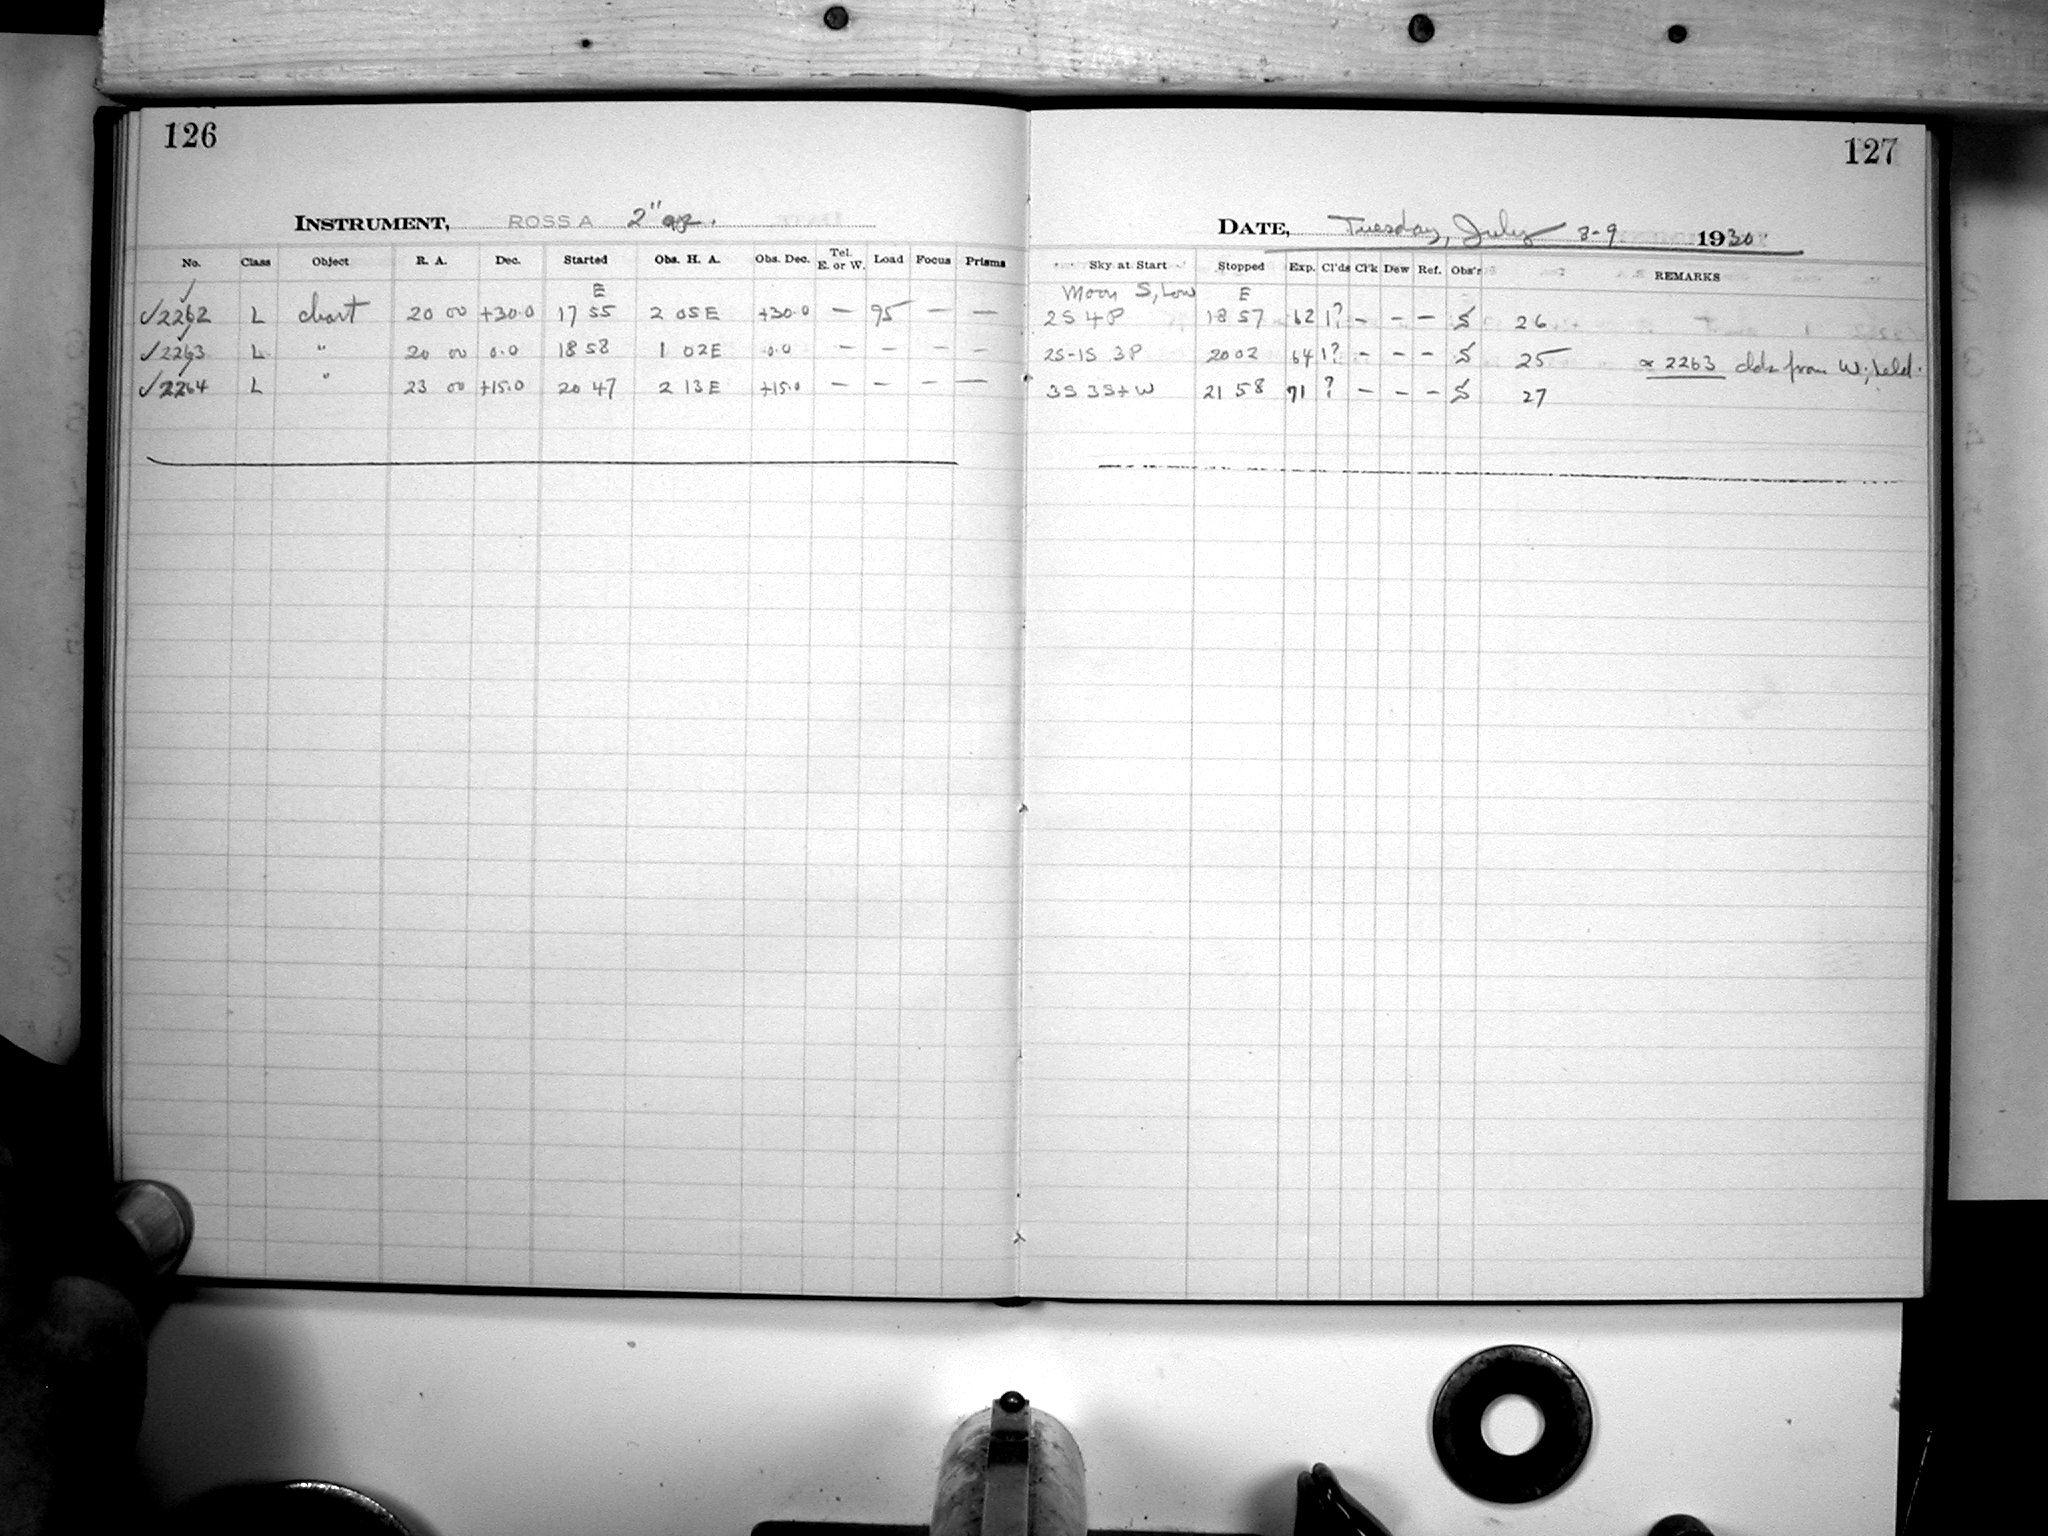 126
INSTRUMENT, ROSS A 2" ap.
No. Class Object R. A. Dec. Started Obs. H. A. Obs. Dec. Tel. E. or W. Load Focus Prisms
E
✓2262 L chart 20 00 +30.0 17 55 2 05 E +30.0 — 95 — —
✓2263 L " 20 00 0.0 18 58 1 02 E 0.0 — — — —
✓2264 L " 23 00 +15.0 20 47 2 13 E +15.0 — — — —
127
DATE, Tuesday, July 8-9 1930
Sky at Start Stopped Exp. Cl'ds Cl'k Dew Ref. Obs'r REMARKS
Moon S, Low E
2S 4P 18 57 62 1? — — — S 26
2S-1S 3P 20 02 64 1? — — — S 25 2263 clds from W;
3S 3S+W 21 58 71 ? — — — S 27